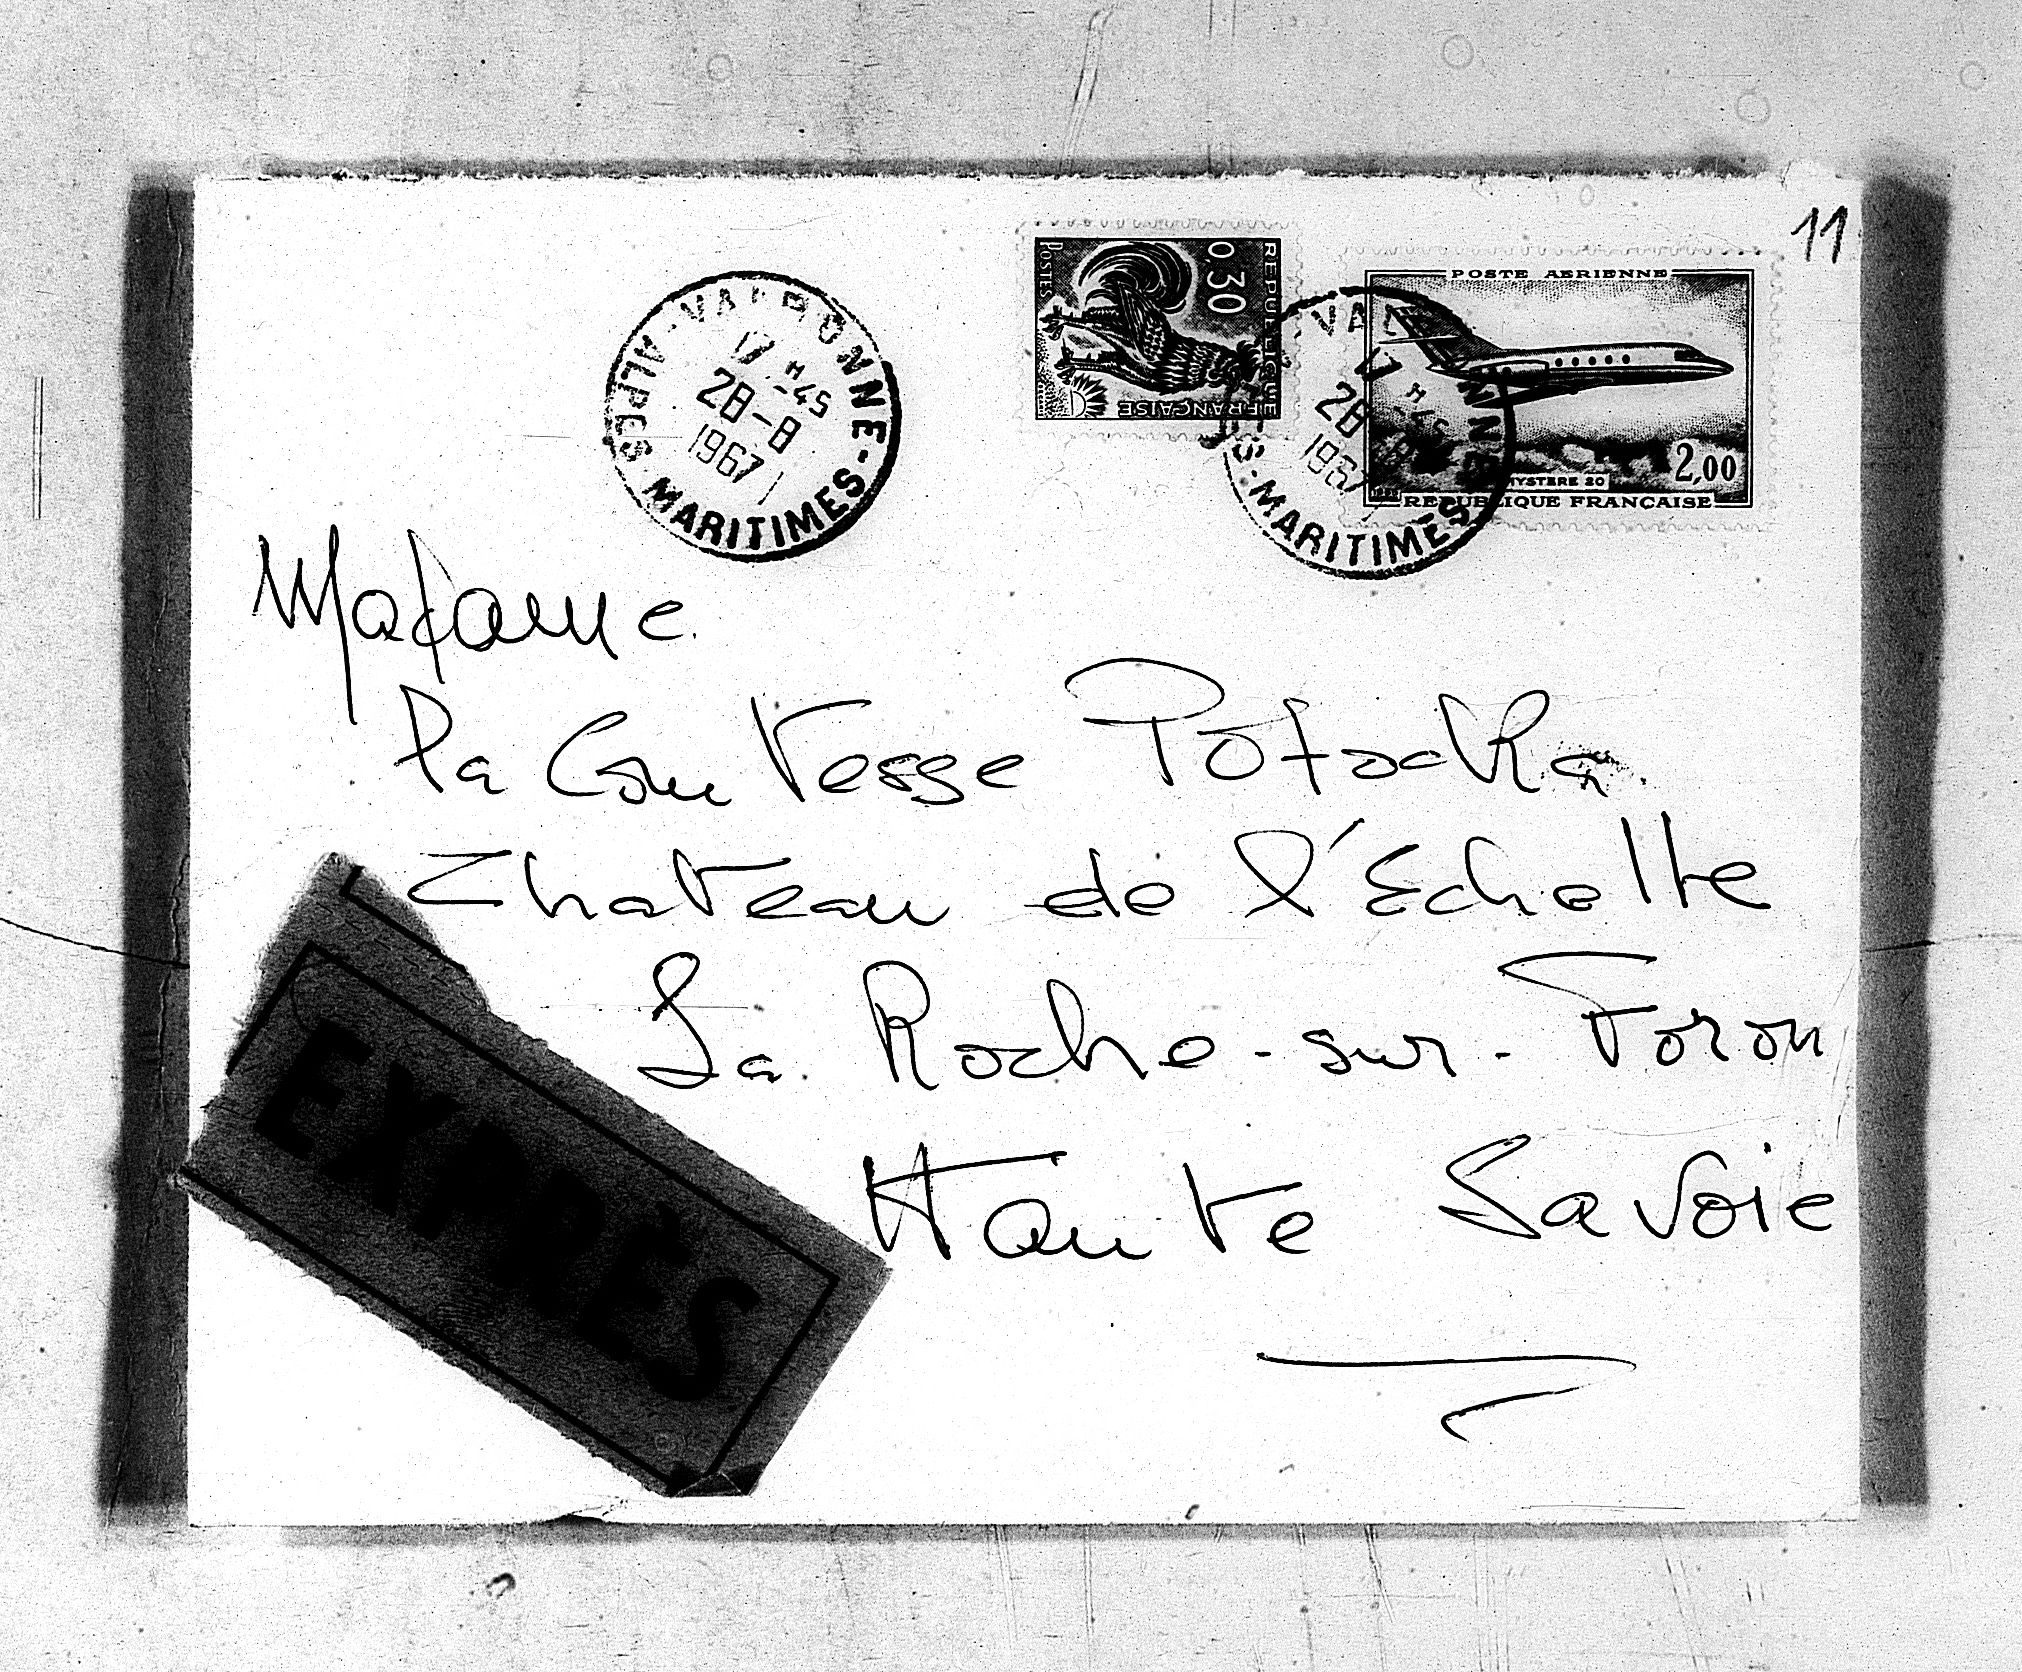 11
POSTES
0,30
REPUBLIQUE
FRANÇAISE
POSTE AERIENNE
MYSTERE 20
2,00
REPUBLIQUE FRANÇAISE
VALBONNE - ALPES-MARITIMES
17 H 45
28-8
1967
VALBONNE - ALPES-MARITIMES
17 H 45
28-8
1967
Madame
la Comtesse Potocka
Chateau de l'Echelle
La Roche-sur-Foron
Haute Savoie
EXPRÈS